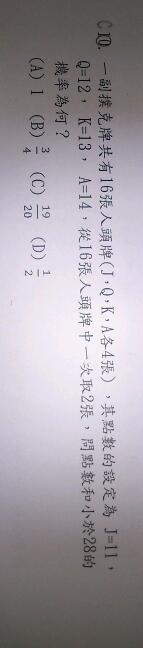 C 10. 一副撲克牌共有16張人頭牌(J,Q,K,A各4張),其點數的設定為 J=11,
Q=12, K=13, A=14,從16張人頭牌中一次取2張,問點數和小於28的
機率為何?
(A) 1 (B) 3/4 (C) 19/20 (D) 1/2